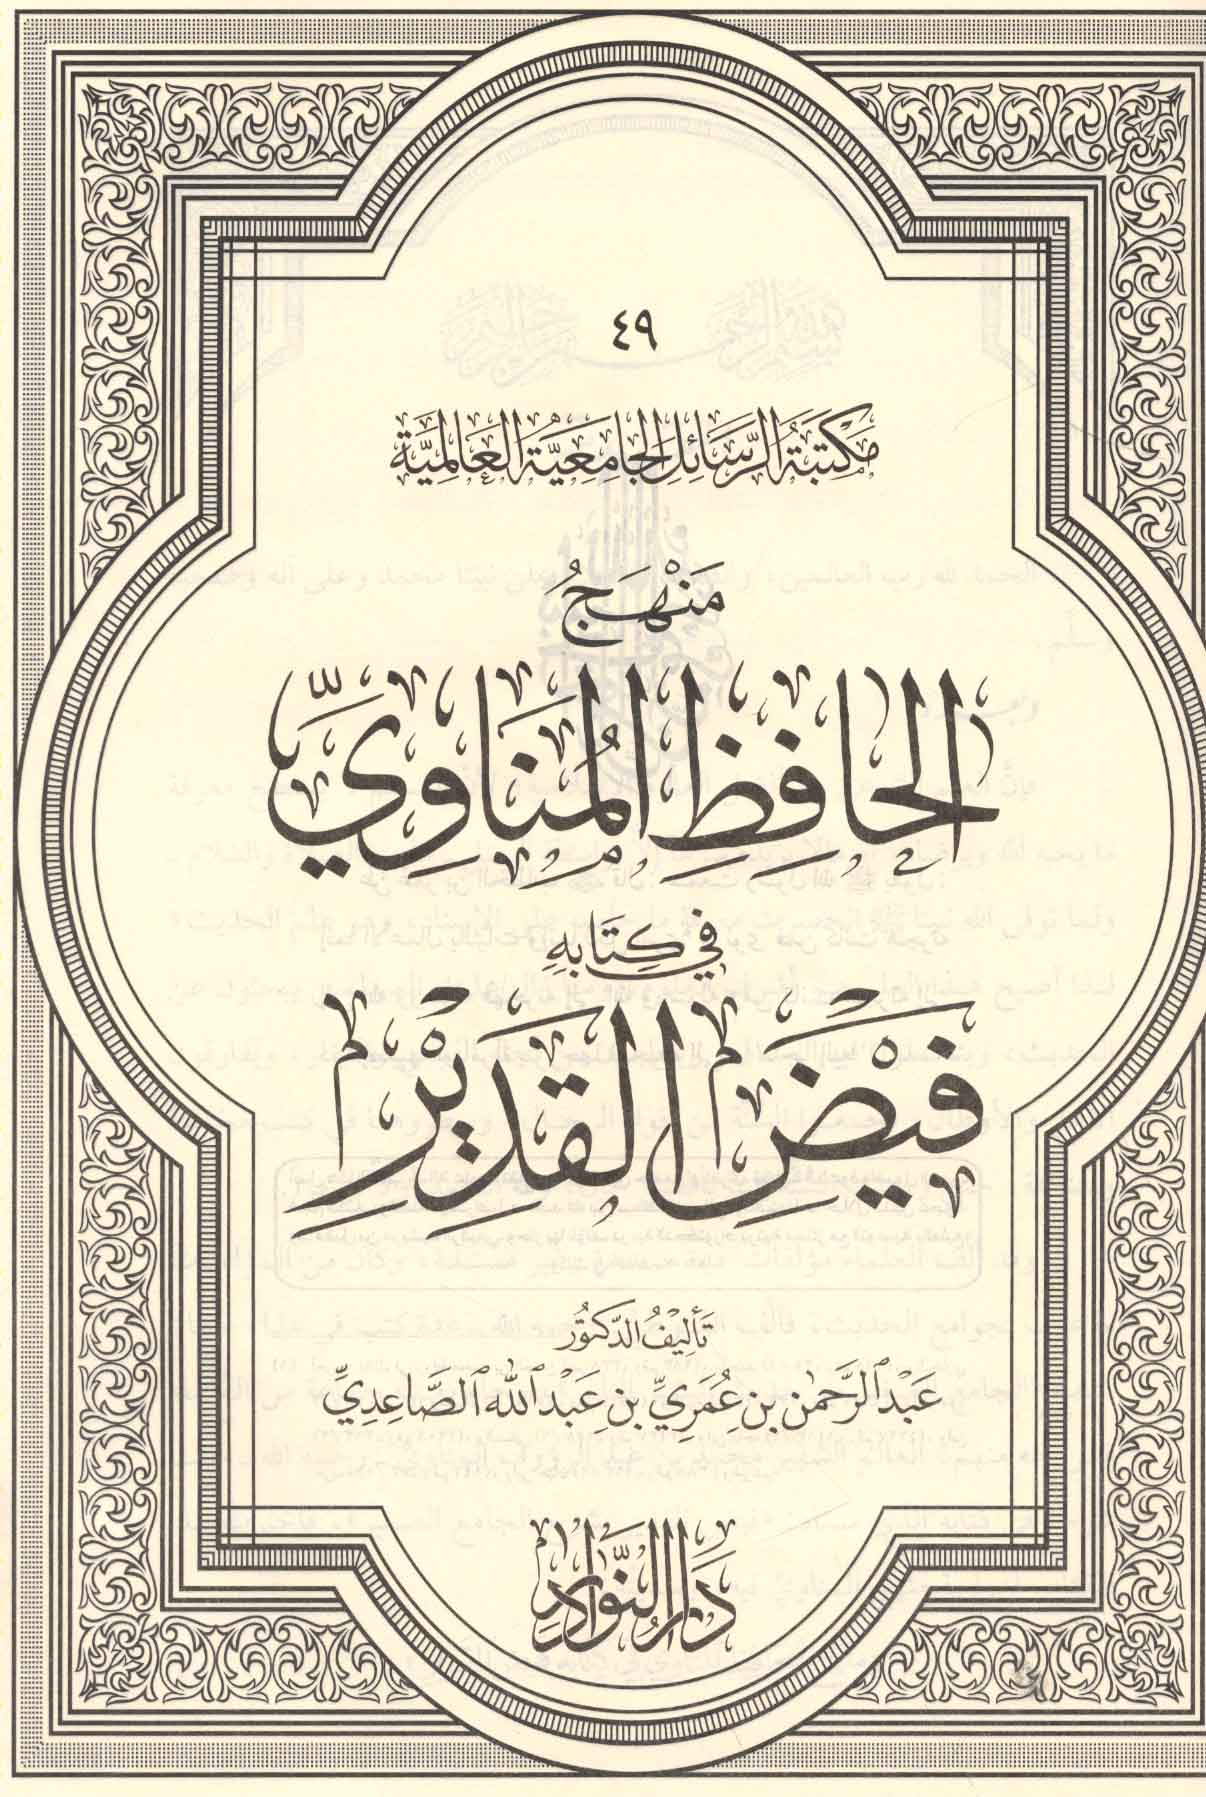 ٤٩
مَكتَبَةُ الرَّسَائِلِ الجَامِعِيَّةِ العَالَمِيَّةِ
مَنْهَجُ
الحَافِظِ المُنَاوِيِّ
فِي كِتَابِهِ
فَيْضِ القَدِيْرِ
تَأليْفُ الدَّكتُوْر
عَبْد الرَّحمٰن بن عُمَرِيّ بن عَبْد الله الصَّاعِدِيّ
دَارُ النَّوَادِرِ